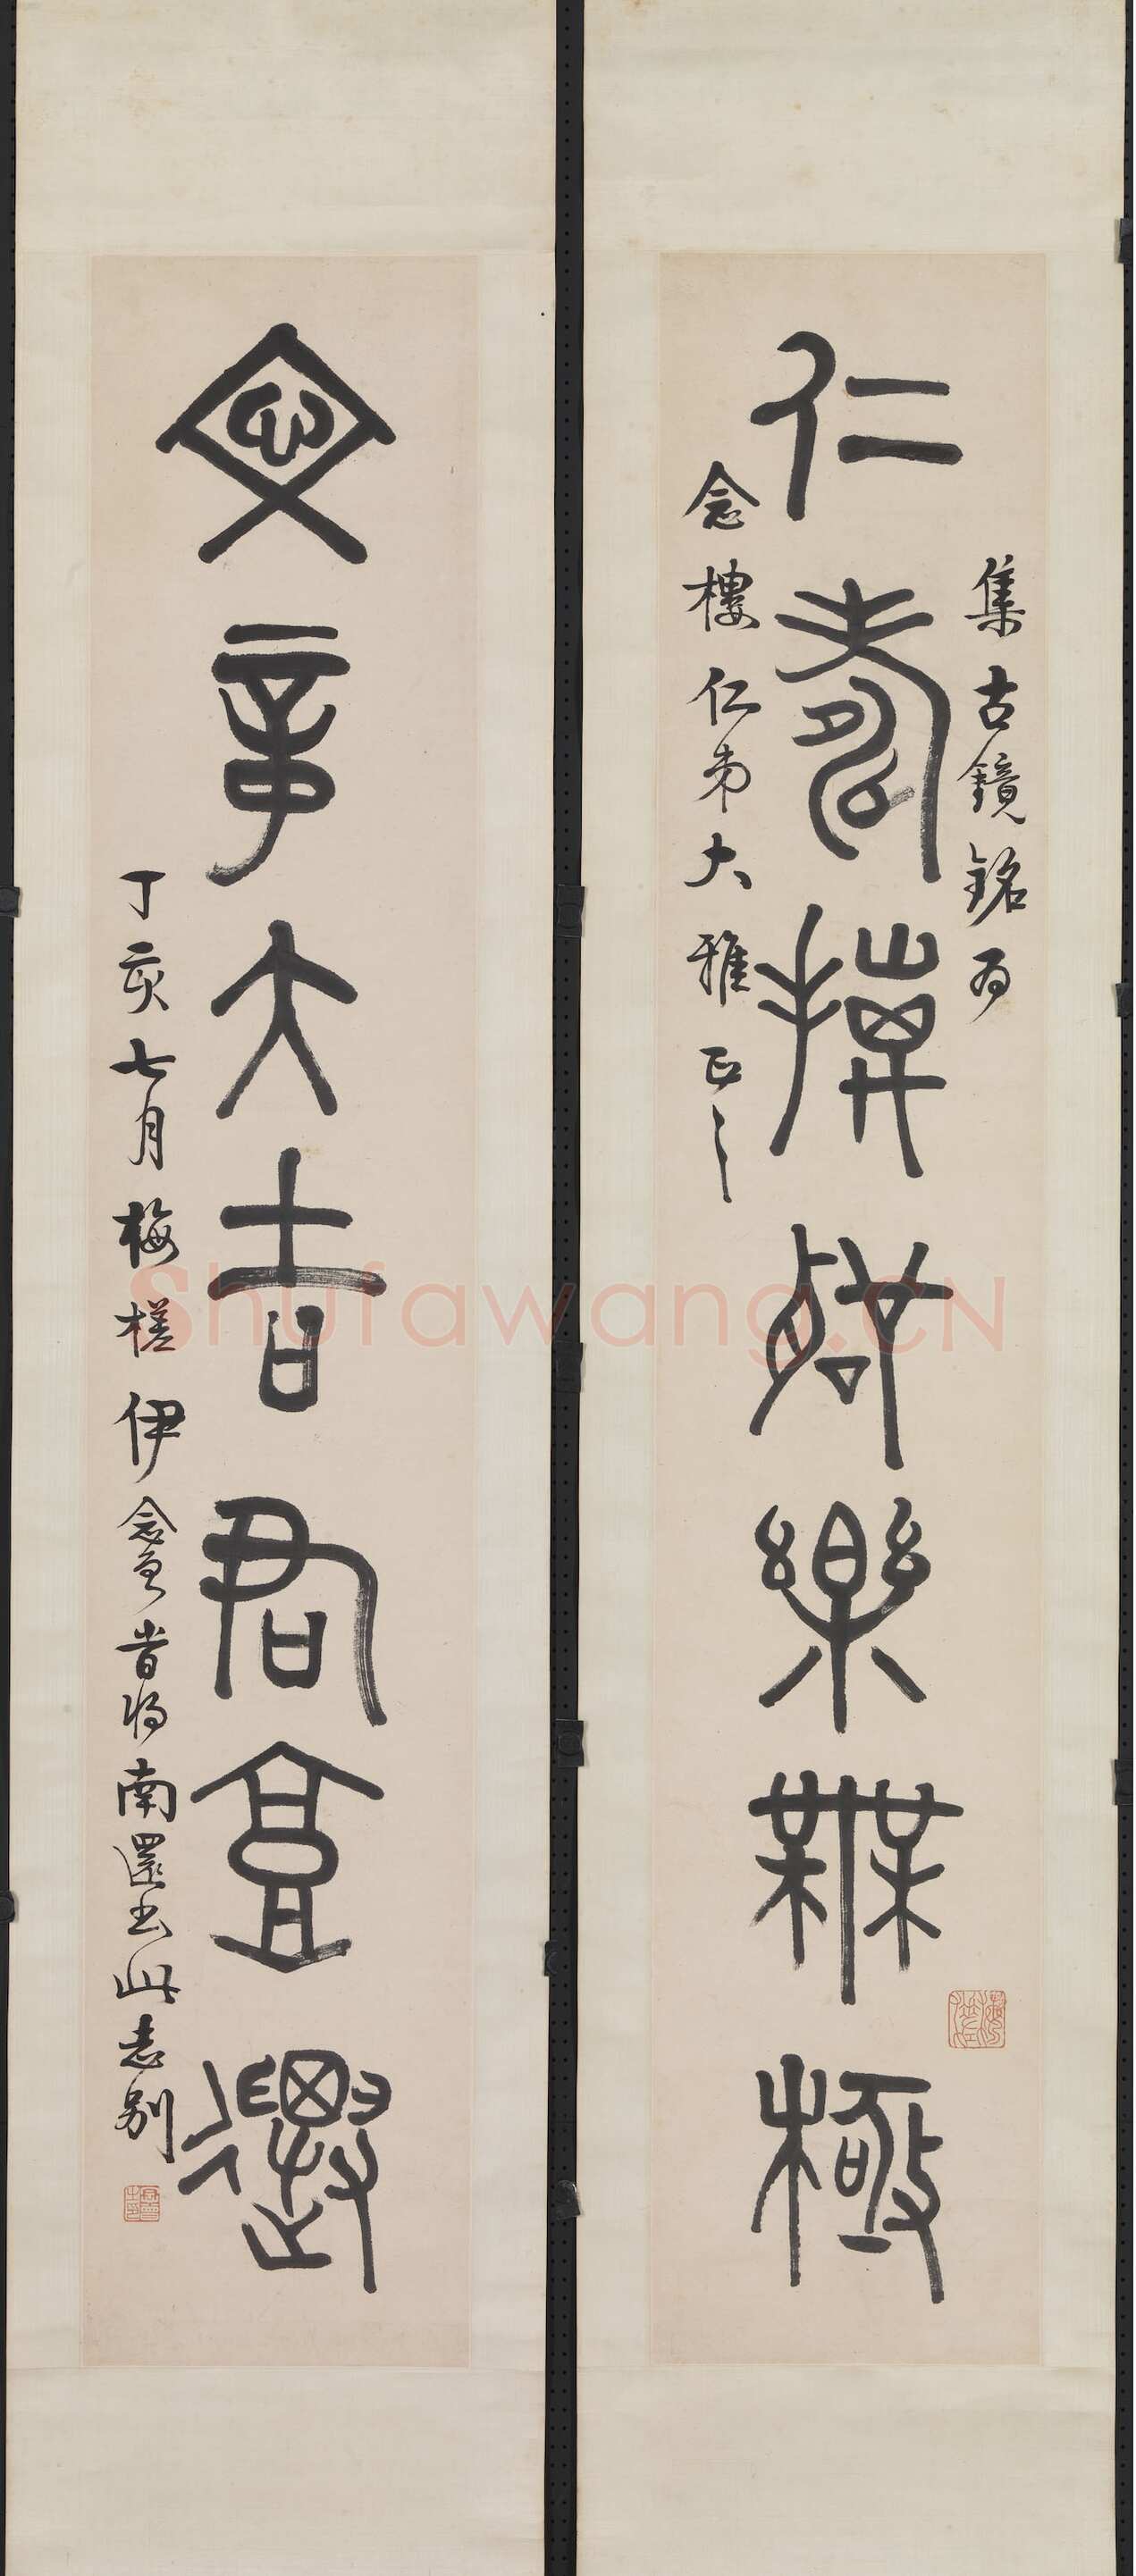 仁壽樂無極
集古鏡銘為
念樓仁弟大雅正之
文章大吉君宜遷
丁亥七月梅槎伊念曾旹將南還書此志別
Shufawang.CN